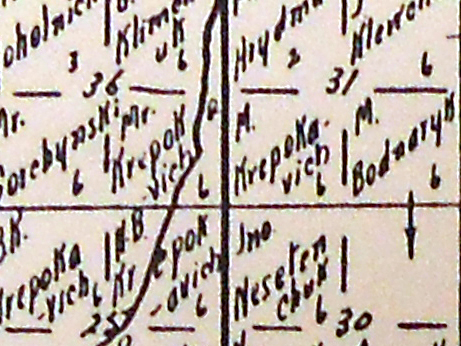 Klimen
uk
3 6
36
Mr.
Krepok
vich
6 6
Hrydm
2
31
6
M.
Krepoka-
vich
6
M.
Bodnaryk
6
B.K.
Krepoka
vich 6
H.B.
Krepok
-avich
6
25
Jno.
Neseten
chuk
6
30